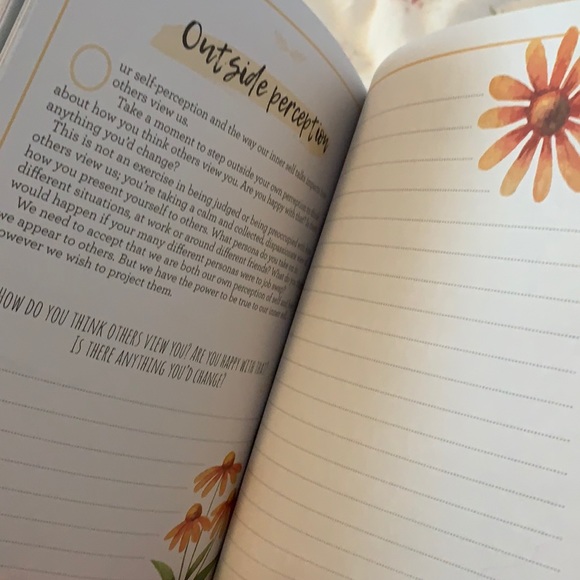 Outside perception
Our self-perception and the way our inner self talk
others view us.
Take a moment to step outside your own perception
about how you think others view you. Are you happy with
anything you'd change?
This is not an exercise in being judged or being preoccupied
others view us; you're taking a calm and collected, dispassionate
how you present yourself to others. What persona do you take on
different situations, at work or around different friends? What
would happen if your many different personas were to
We need to accept that we are both our own perception of self and
we appear to others. But we have the power to be true to our inner
however we wish to project them.
HOW DO YOU THINK OTHERS VIEW YOU? ARE YOU HAPPY WITH THAT?
IS THERE ANYTHING YOU'D CHANGE?